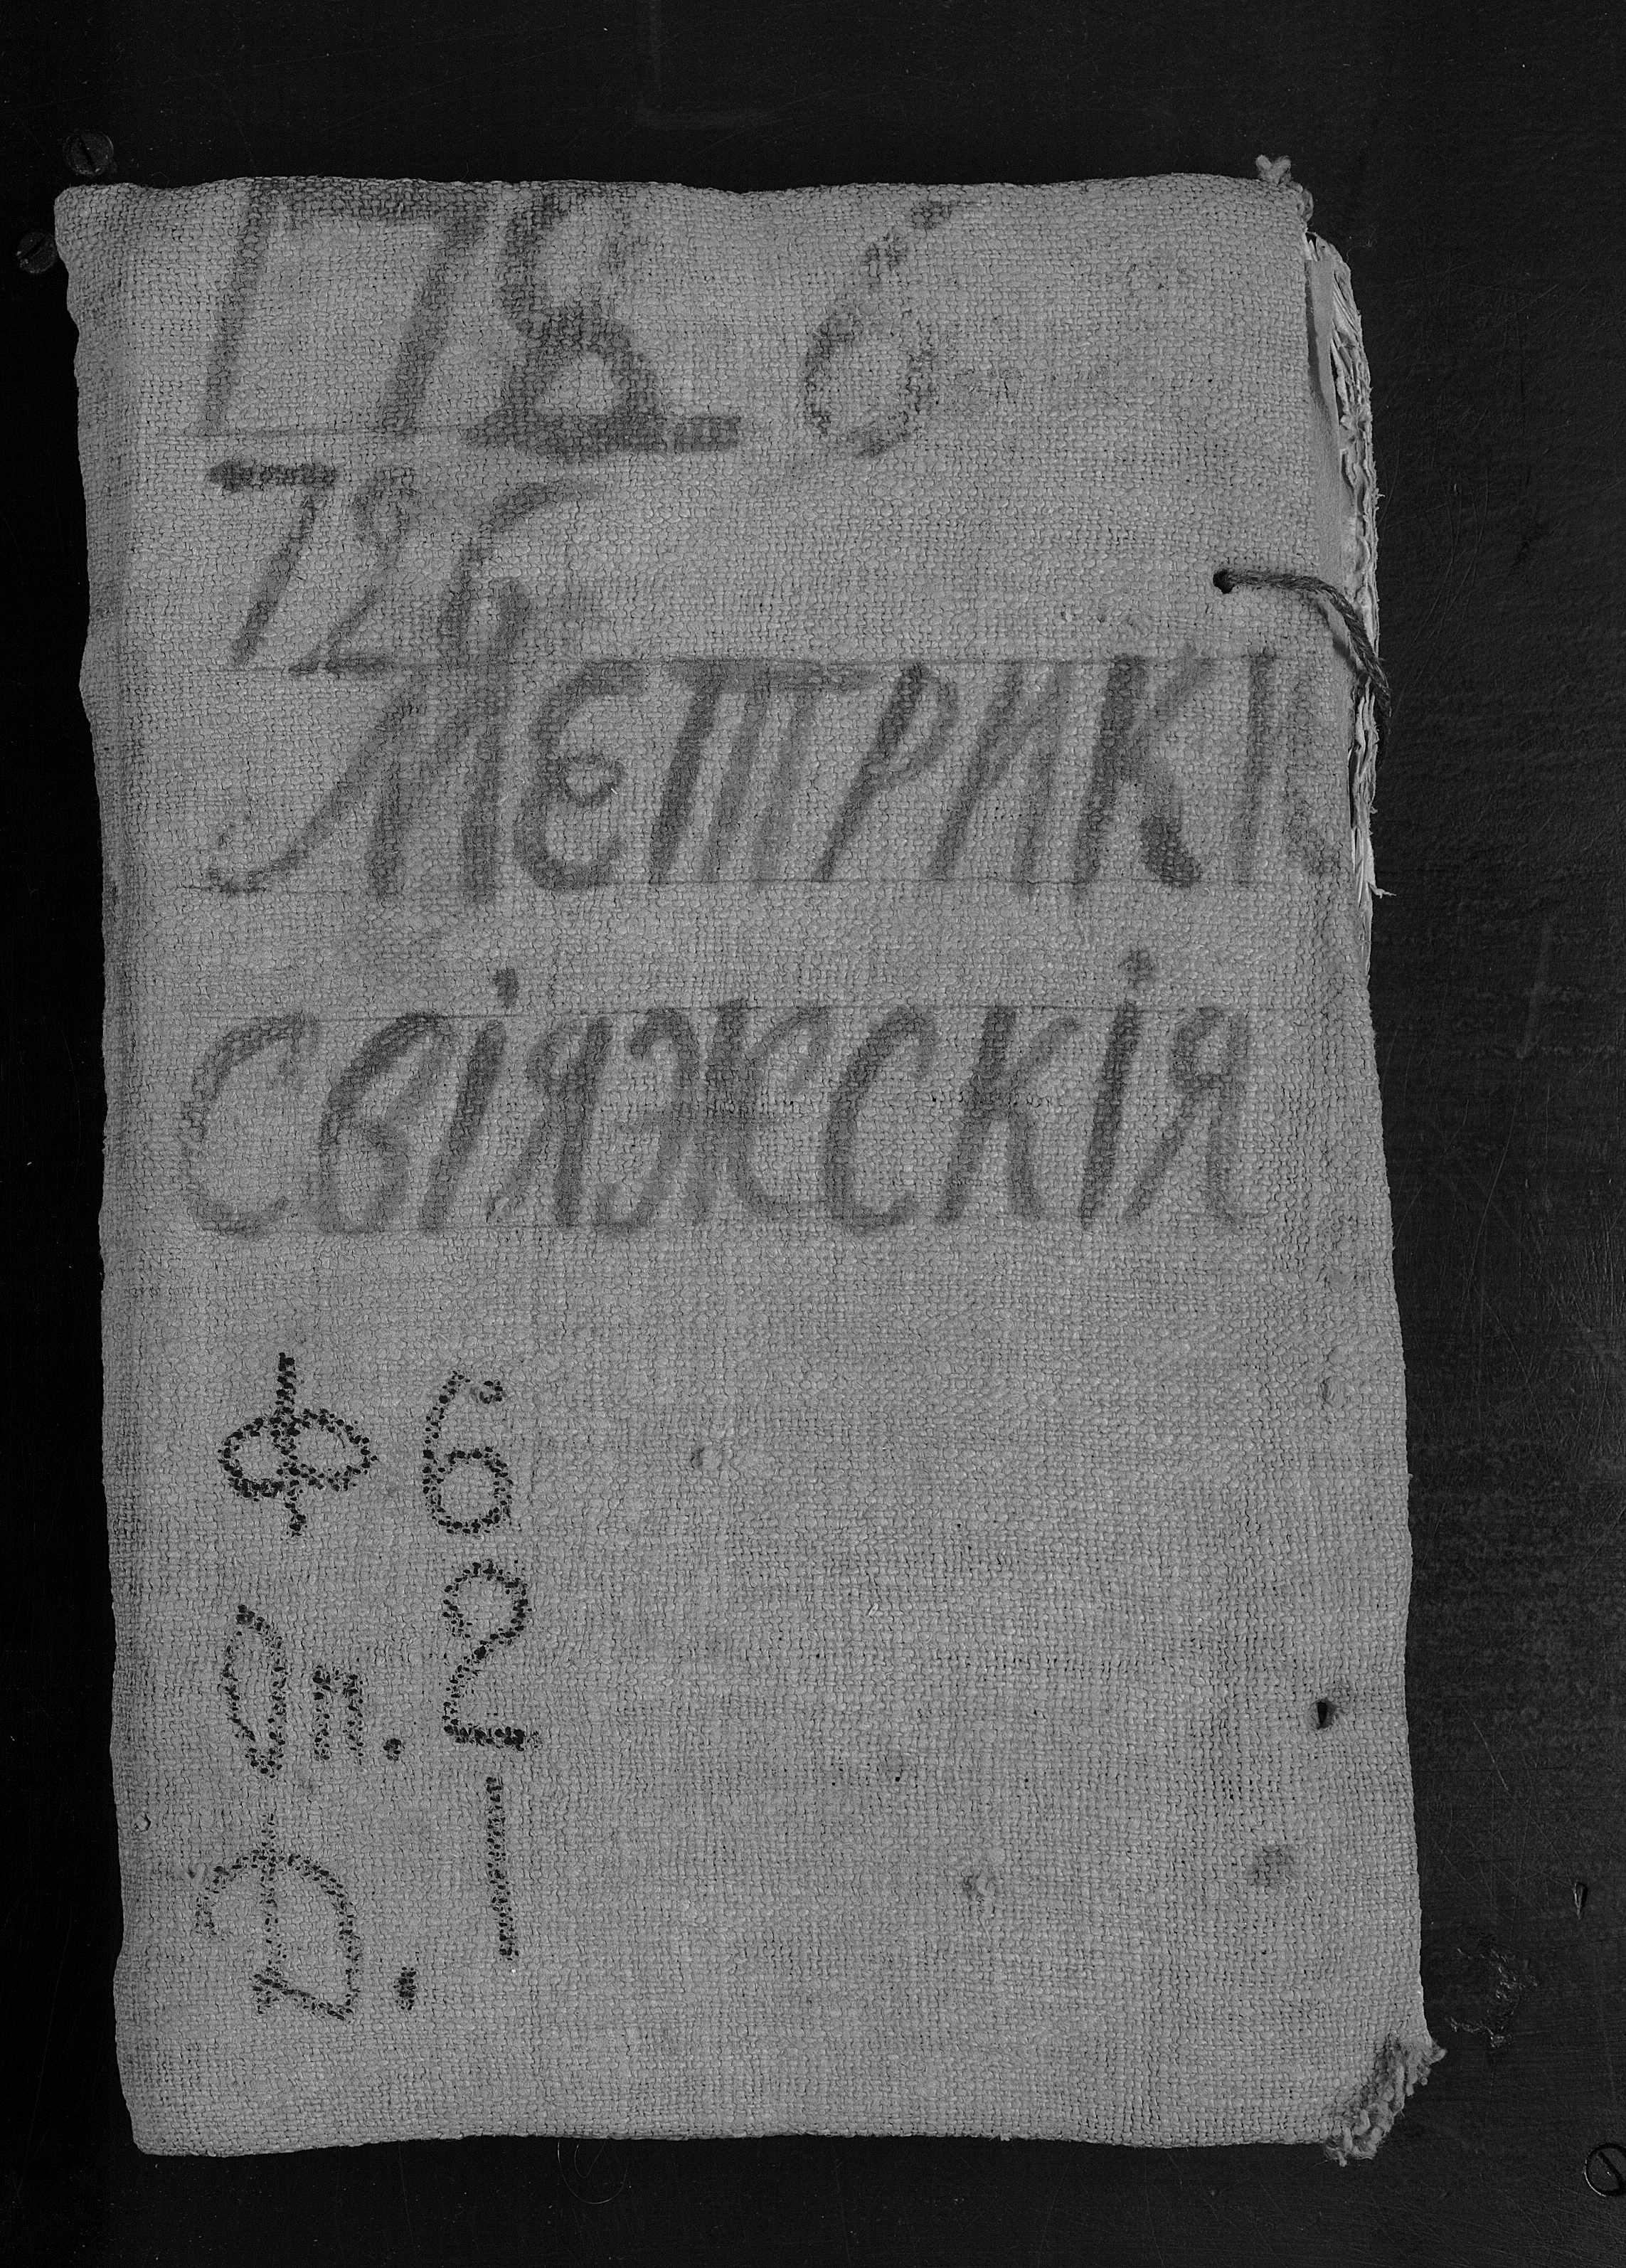 726
Метрики
Свіяжскія
Ф 6
Оп. 2
Д. 1